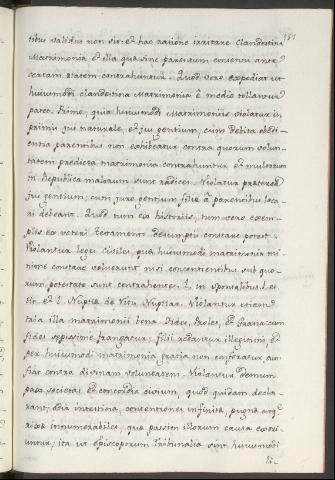 151
tibus validus non sit: et hac ratione irritare Clandestina
Matrimonia et illa quæ sine parentum consensu ante
certam ætatem contrahuntur. Quod vero expediat ut
huiusmodi clandestina Matrimonia è medio tollantur
patet. Primo, quia huiusmodi Matrimonijs violatur in
primis jus naturale, et jus gentium, cum debita obedi-
entia parentibus non exhibeatur contra quorum volun-
tatem predicta matrimonia contrahuntur et multorum
in Republica malorum sunt radices. Violatur præterea
jus gentium, cum jure gentium filiæ à parentibus loca-
ri debeant. Quod tum ex historijs, tum vero exem-
plis ex veteri Testamento desumptis constare potest.
Violantur leges civiles, quæ huiusmodi matrimonia mi-
nime constare voluerunt nisi consentientibus sub quo-
rum potestate sunt contrahentes. L. in sponsalibus
et l. Nuptiæ de Ritu Nuptiar. Violantur etiam
illa matrimonij bona. fides, Proles, et Sacramentum
fides sæpissime frangatur; filij redantur illegitimi et
per huiusmodi matrimonia gratia non conferatur, cum
fiat contra divinam voluntatem. Violatur demum
pax societas et concordia civium, quod quidam decla-
rant, odia intestina, contentiones infinitæ, pugnæ atque
rixæ innumerabiles, quæ passim illorum causa exori-
untur, ita ut Episcoporum tribunalia sint huiusmodi
li-